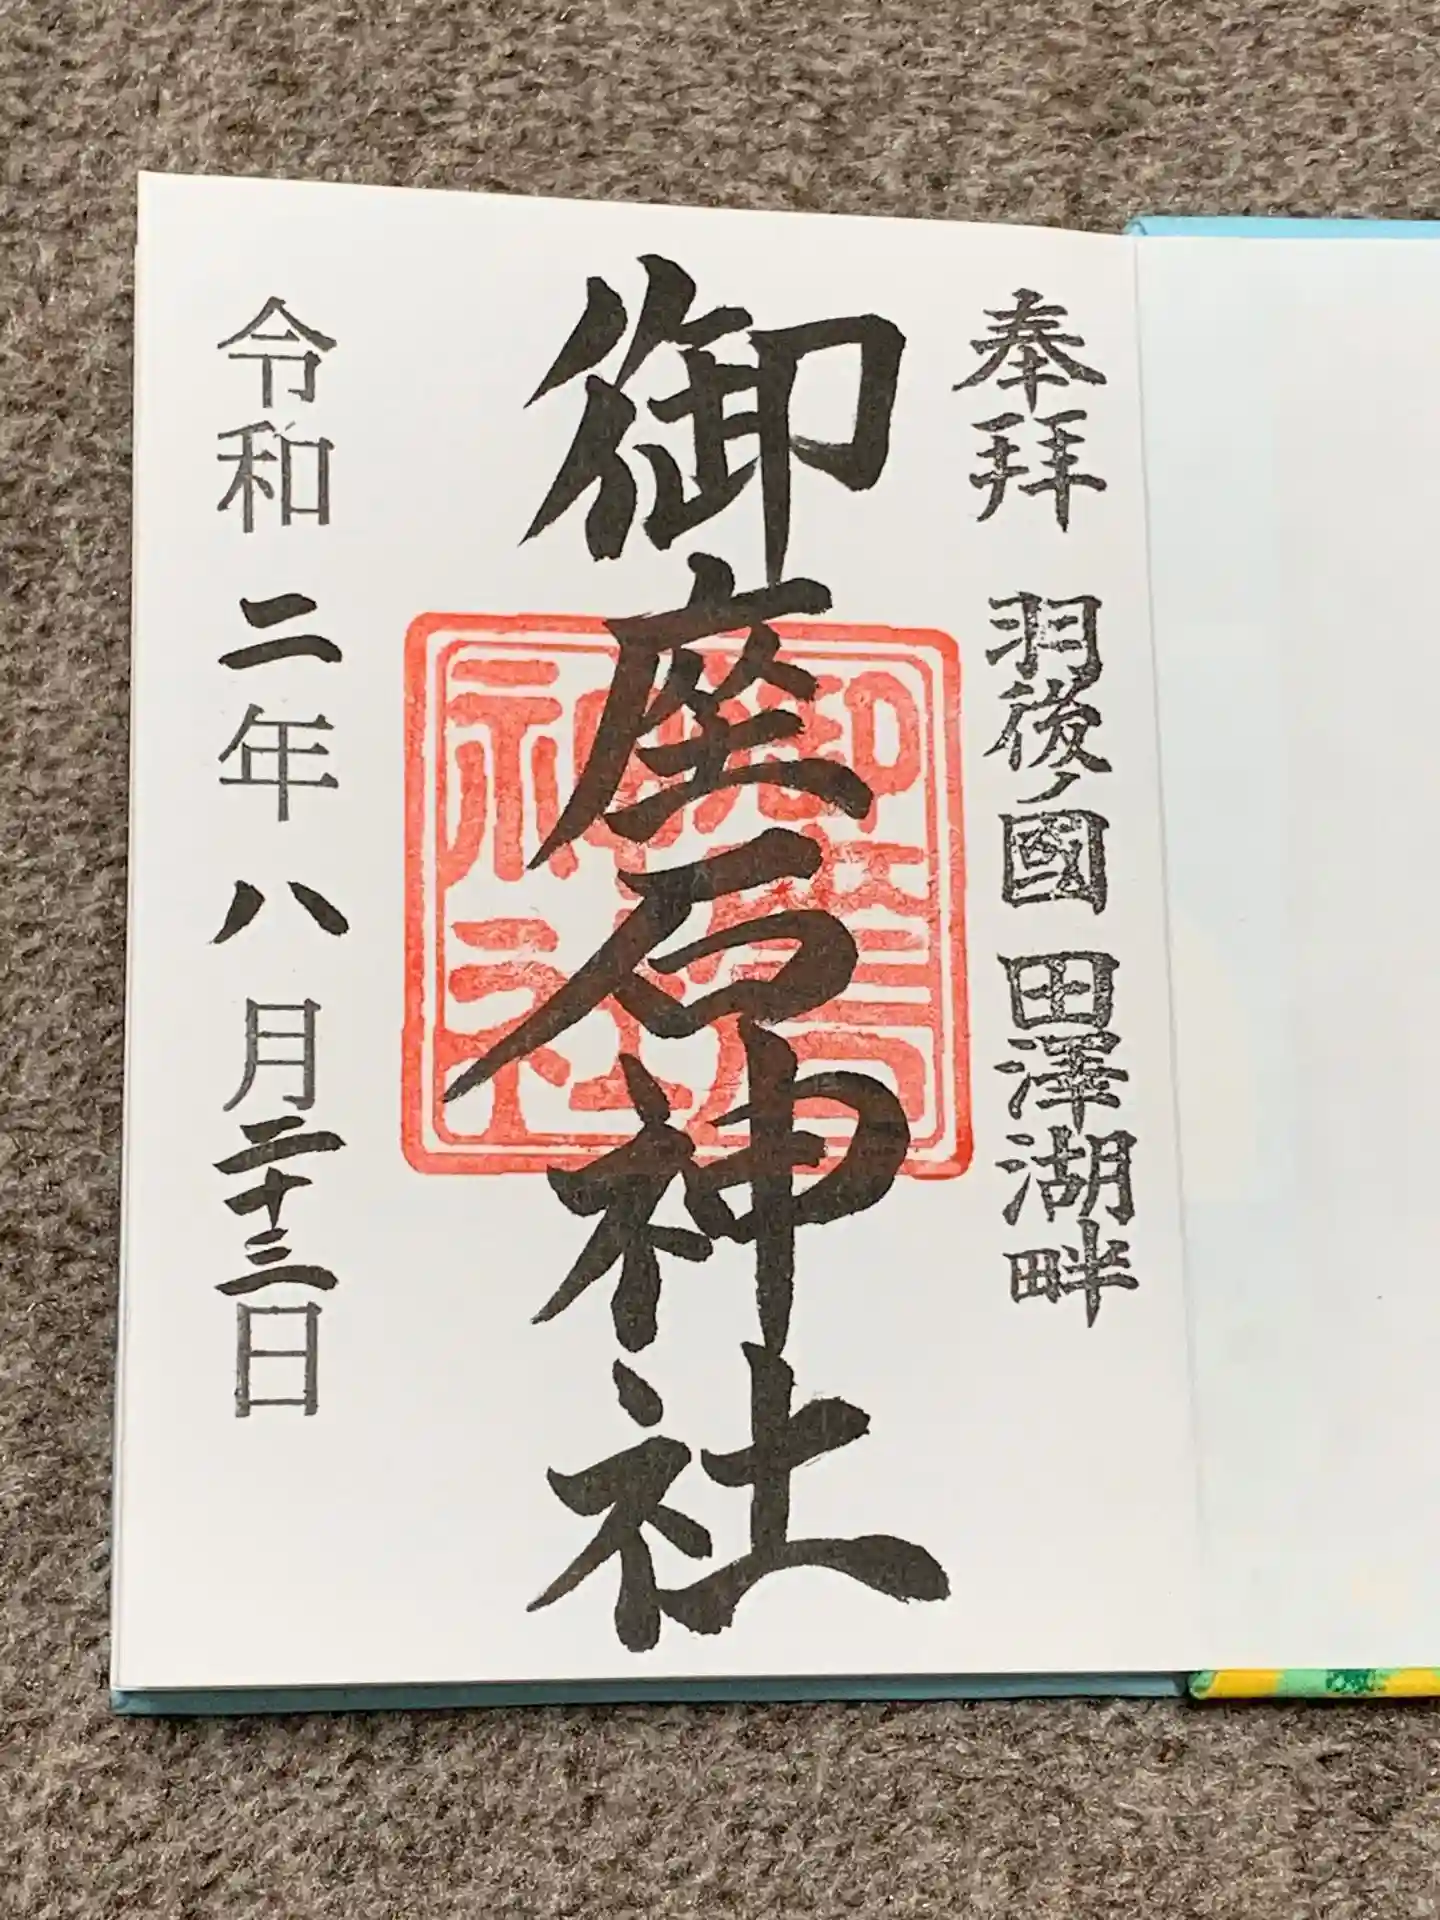 奉拜 羽後ノ國 田澤湖畔
御座石神社
令和二年八月二十三日